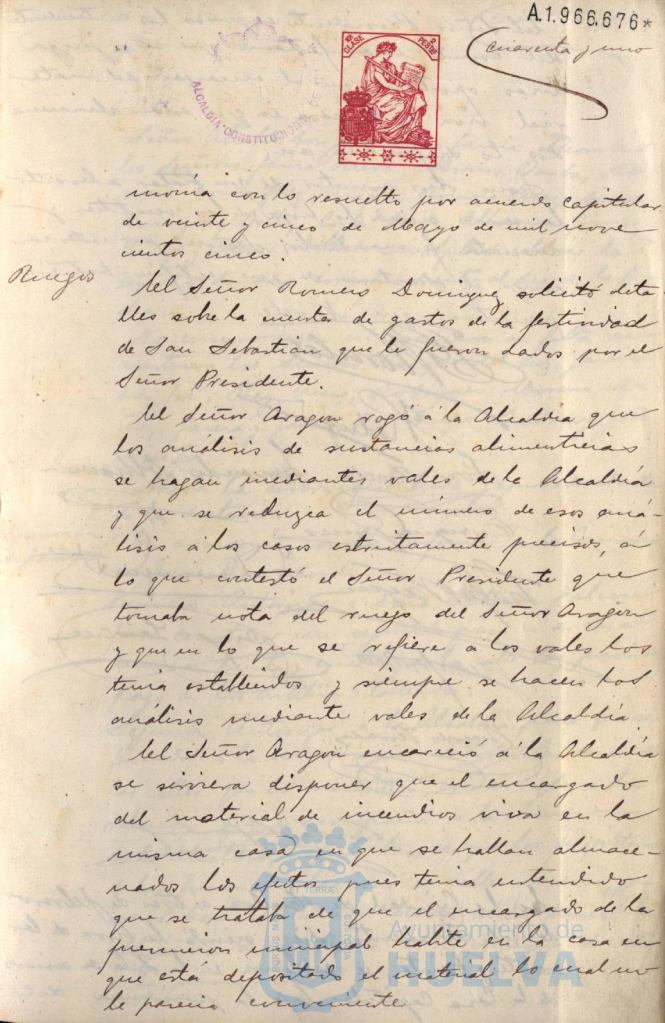 A.1.966.676*
cuarenta y uno
10ª CLASE 2 PESETAS
ALCALDIA CONSTITUCIONAL DE
monia con lo resuelto por acuerdo capitular
de veinte y cinco de Mayo de mil nove
cientos cinco.
Ruegos
El Señor Romero Dominguez solicitó deta-
lles sobre la cuenta de gastos de la festividad
de San Sebastián que le fueron dados por el
Señor Presidente.
El Señor Aragon rogó á la Alcaldía que
los análisis de sustancias alimenticias
se hagan mediantes vales de la Alcaldía
y que se reduzca el número de esos aná-
lisis á los casos estrictamente precisos, á
lo que contestó el Señor Presidente que
tomaba nota del ruego del Señor Aragon
y que en lo que se refiere á los vales los
tenia establecidos y siempre se hacen los
análisis mediante vales de la Alcaldía.
El Señor Aragon encareció á la Alcaldía
se sirviera disponer que el encargado
del material de incendios viva en la
misma casa en que se hallan almace-
nados los efectos pues tenia entendido
que se trataba de que el encargado de la
municipal habite en la casa en
que está depositado el material lo cual no
le parecia conveniente
Ayuntamiento de
HUELVA